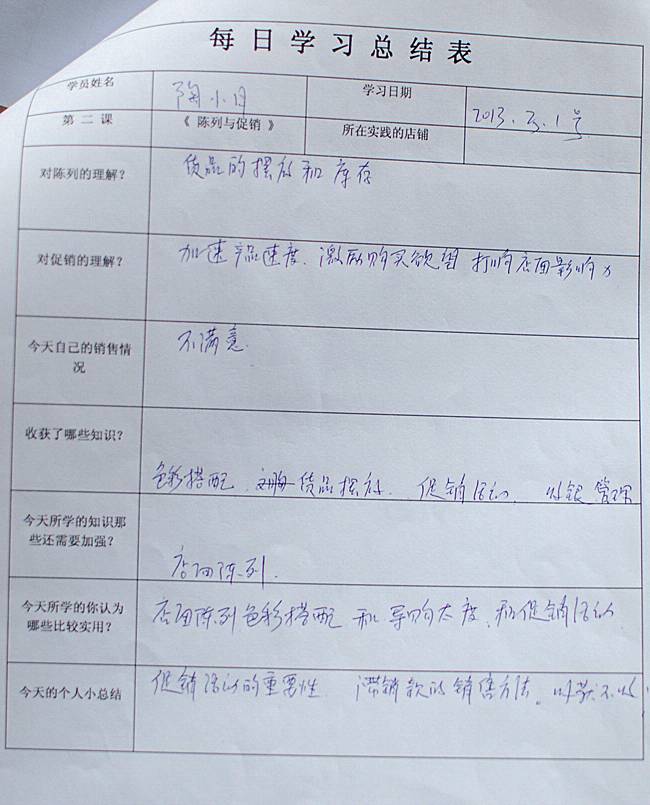 每日学习总结表
学员姓名 陶小月 学习日期 2013.3.1号
第二课 《陈列与促销》 所在实践的店铺
对陈列的理解? 货品的摆放和库存
对促销的理解? 加速产品速度.激励购买欲望 打响店面影响力
今天自己的销售情
况
不满意.
收获了哪些知识?
色彩搭配. 货品摆放. 促销活动. 管理
今天所学的知识那
些还需要加强?
店面陈列.
今天所学的你认为
哪些比较实用?
店面陈列色彩搭配 和导购太度、和促销活动
今天的个人小总结 促销活动的重要性 滞销款的销售方法。